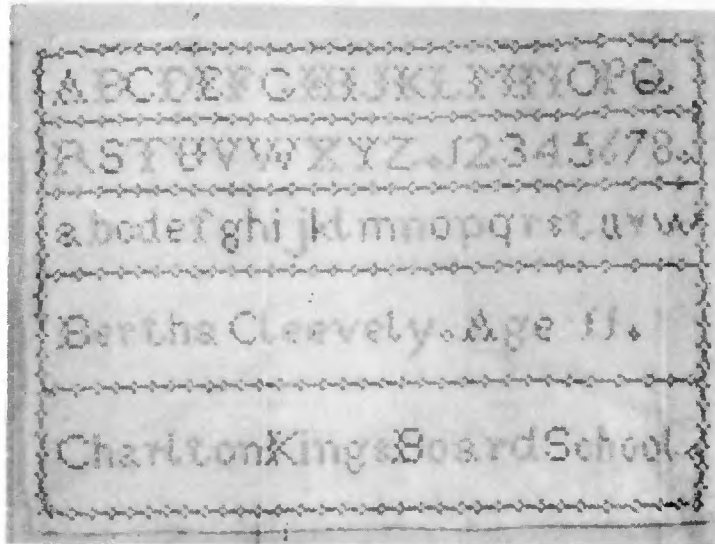 ABCDEFGHIJKLMNOPQ
RSTUVWXYZ.12345678.
abcdefghijklmnopqrstuvw
Bertha Cleevely. Age 11.
Charlton Kings Board School.